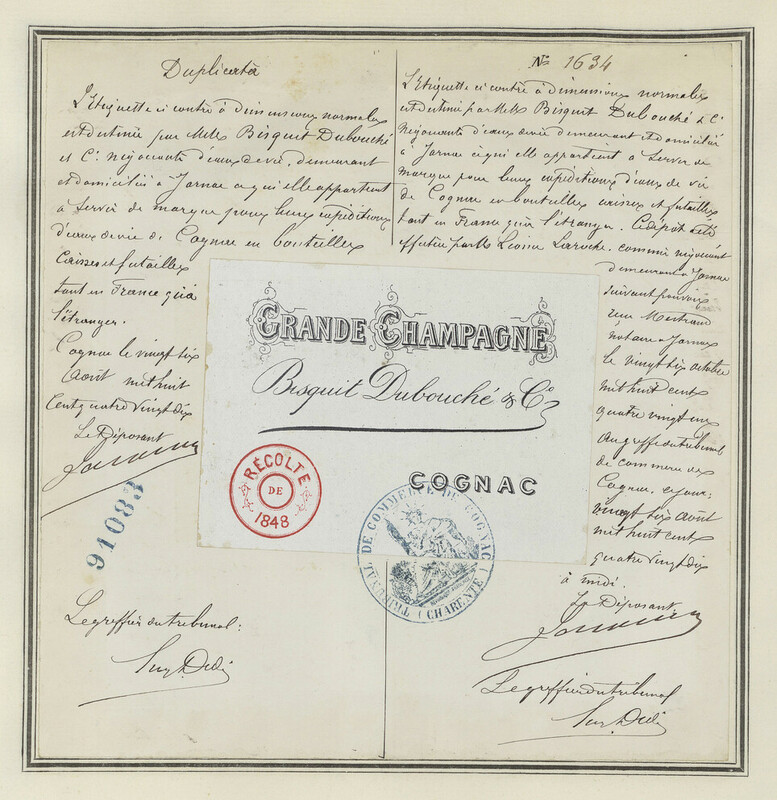 Duplicata
L'Etiquette ci contre à dimensions normales
est destinée par MMrs Bisquit Dubouché
et Cie négociants d'eaux de vie, demeurant
et domiciliés à Jarnac à qui elle appartient
à servir de marque pour leurs expéditions
d'eaux de vie de Cognac en bouteilles
Caisses et futailles
tant en France qu'à
l'étranger.
Cognac le vingt six
Août mil huit
Cent quatre vingt dix
Le Déposant
91083
Le greffier du tribunal:
No 1634
L'Etiquette ci contre à dimensions normales
est destinée par MMrs Bisquit Dubouché & Cie
Négociants d'eaux de vie demeurant et domiciliés
à Jarnac à qui elle appartient à servir de
marque pour leurs expéditions d'eaux de vie
de Cognac en bouteilles caisses et futailles
tant en France qu'à l'étranger. Ce dépôt a été
effectué par Mr Laroche, commis négociant
demeurant à Jarnac
suivant pouvoir
reçu
notaire à Jarnac
le vingt six octobre
mil huit cent
quatre vingt
au greffe du tribunal
de commerce de
Cognac, ce jour:
vingt six août
mil huit cent
quatre vingt dix
à midi.
Le Déposant
Le greffier du tribunal
GRANDE CHAMPAGNE
Bisquit Dubouché & Co
RÉCOLTE
DE
1848
COGNAC
TRIBUNAL DE COMMERCE DE COGNAC
(CHARENTE)